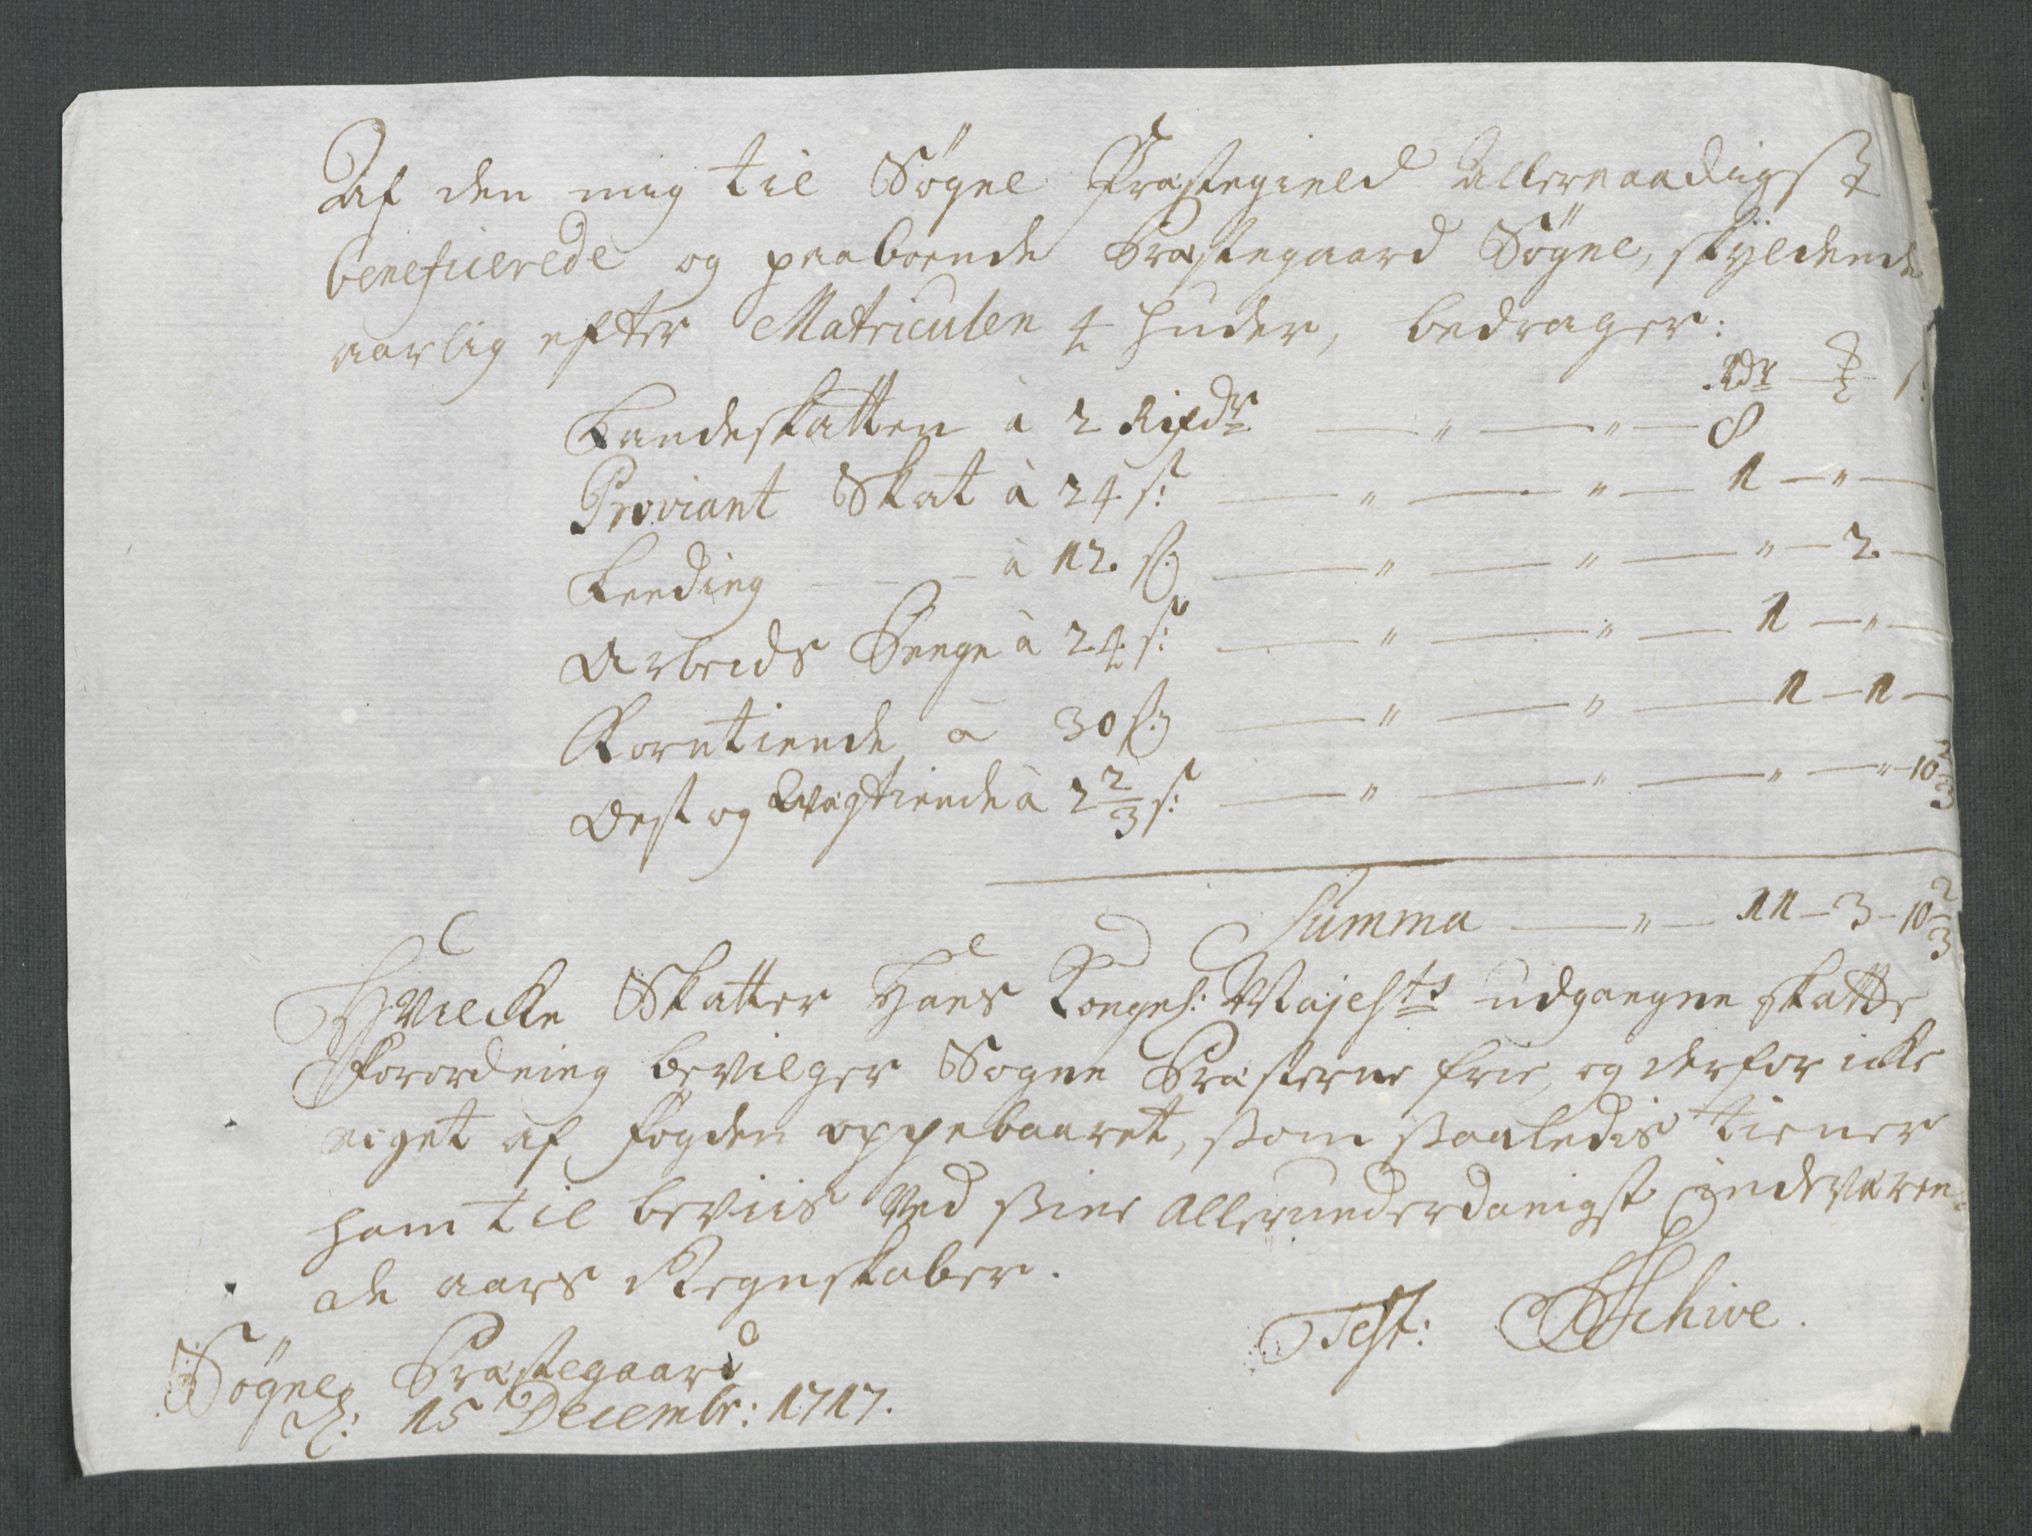 Af den mig til Søgne Præstegield Allernaadigst
beneficerede og paaboende Præstegaard Søgne, skyldende
aarlig efter Matriculen 4 huder, bedrager:
Rdr — — s:
Landeskatten à 2 Rixdr — " — " — 8
Proviant Skat à 24 s: — " — " — 1 — " —
Leeding — à 12. s: — " — " — " — 2. —
Arbeids Penge à 24 s: — " — " — 1 — " —
Korntiende à 30 s: — " — " — 1 — 1 —
Oest og Qvægtiende à 2 2/3 s: — " — " — " — " — 10 2/3
Summa — " — 11 — 3 — 10 2/3
Hvilcke Skatter Hans Kongel: Majests udgangne skatte
Forordning bevilger Sogne Præsterne frie, og derfor icke
noget af Fogden oppebaaret, som saaledis tiener
ham til beviis ved sine allerunderdanigst indeværen-
de aars Regnskaber.
Test: Schive.
Søgne Præstegaard
d: 15 Decembr: 1717.